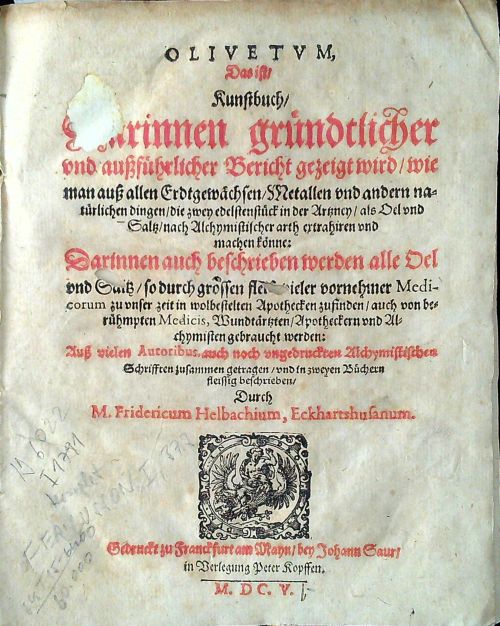 OLIVETVM,
Das ist/
Kunstbuch/
Darinnen gründtlicher
vnd außführlicher Bericht gezeigt wird/ wie
man auß allen Erdtgewächsen/ Metallen vnd andern na-
türlichen dingen/ die zwey edelsten stück in der Artzney/ als Oel vnd
Saltz/ nach Alchymistischer arth extrahiren vnd
machen könne:
Darinnen auch beschrieben werden alle Oel
vnd Saltz/ so durch grossen fleiß vieler vornehmer Medi-
corum zu vnser zeit in wolbestelten Apothecken zufinden/ auch von be-
rühmpten Medicis, Wundtärtzten/ Apotheckern vnd Al-
chymisten gebraucht werden:
Auß vielen Autoribus, auch noch vngedruckten Alchymistischen
Schrifften zusammen getragen/ vnd in zweyen Büchern
fleissig beschrieben/
Durch
M. Fridericum Helbachium, Eckhartshusanum.
Gedruckt zu Franckfurt am Mayn/ bey Johann Saur/
in Verlegung Peter Kopffen.
M. DC. V.